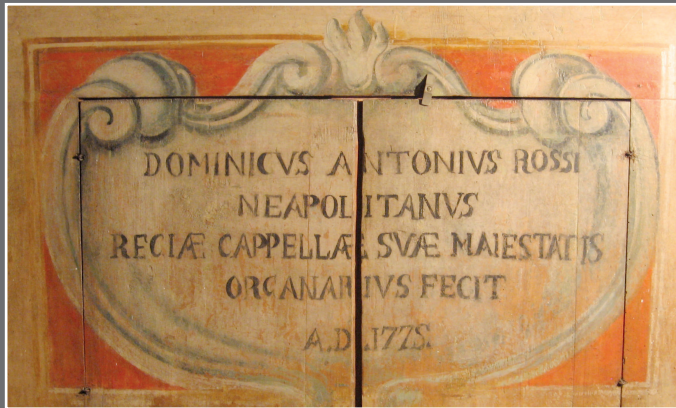 DOMINICVS ANTONIVS ROSSI
NEAPOLITANVS
REGIÆ CAPPELLÆ SVÆ MAIESTATIS
ORGANARIVS FECIT
A.D. 1775.